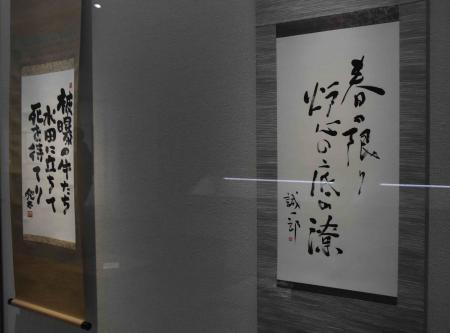 春の限り
炉心の底の潦
誠一郎
被曝の牛たち
水田に立ちて
死を待てり